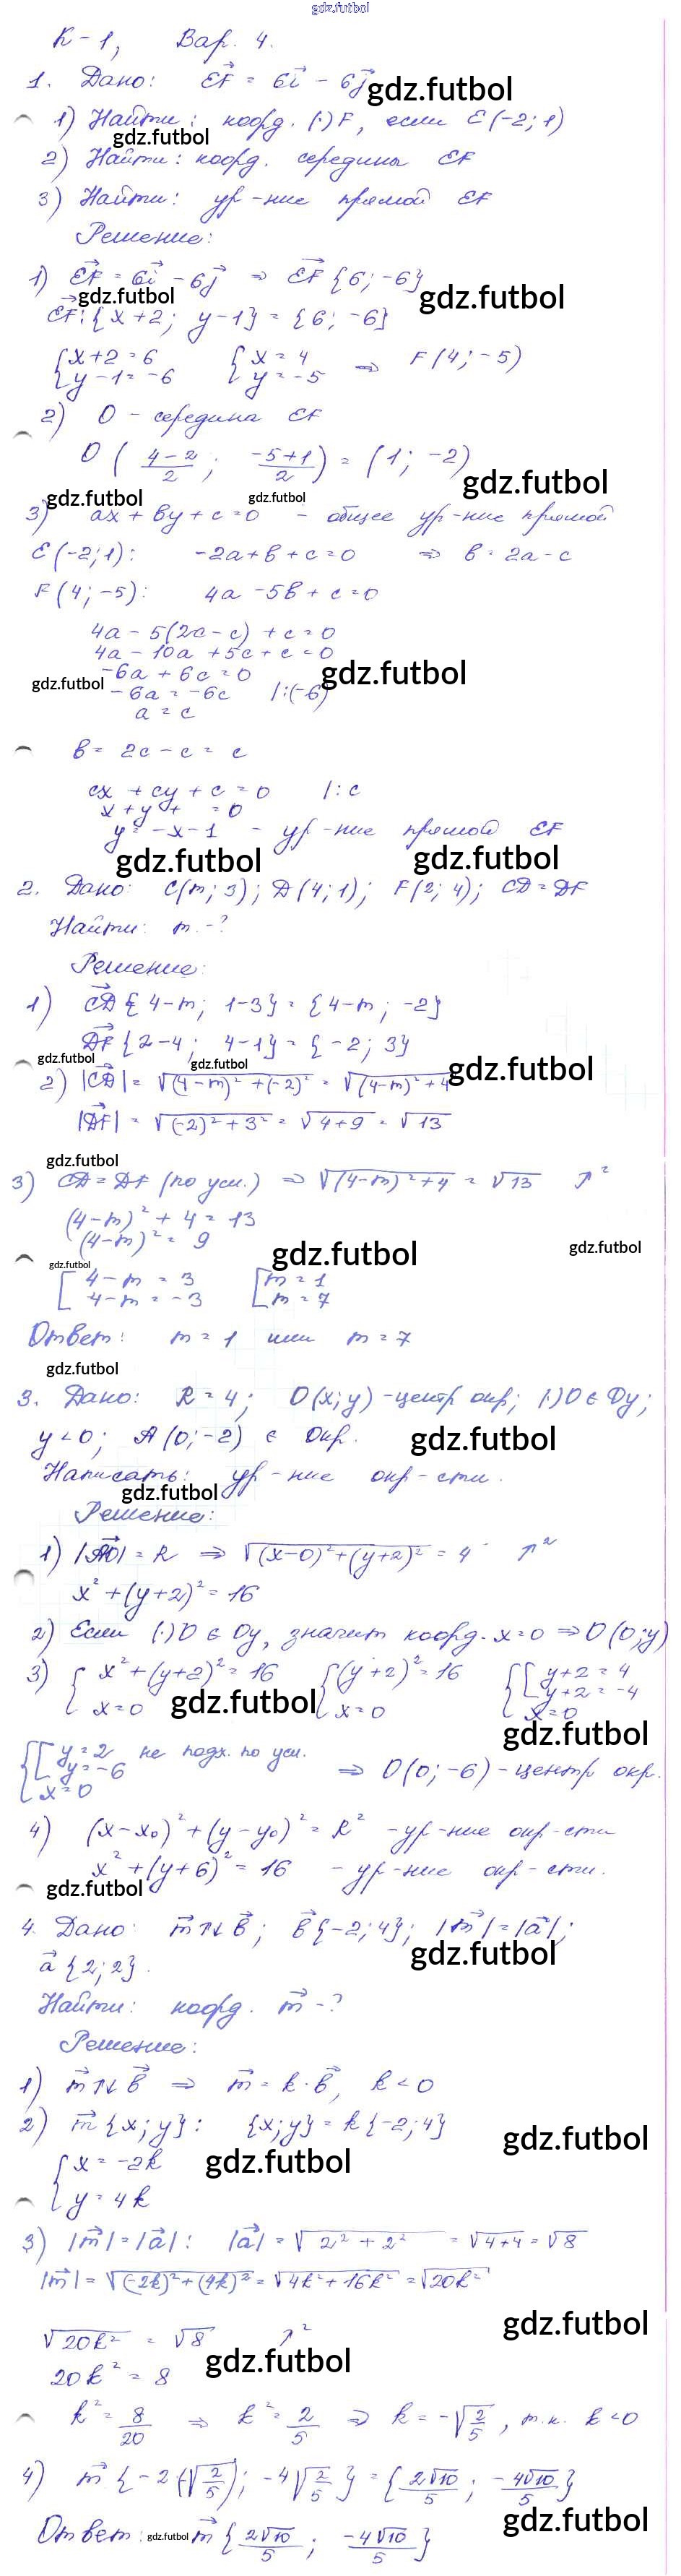 gdz.futbol
К-1, Вар. 4.
1. Дано: EF = 6i - 6j gdz.futbol
1) Найти: коорд. (·) F, если E(-2; 1)
gdz.futbol
2) Найти: коорд. середины EF
3) Найти: ур-ние прямой EF
Решение:
1) EF = 6i - 6j ⇒ EF {6; -6}
gdz.futbol gdz.futbol
EF: {x+2; y-1} = {6; -6}
{x+2=6 {x=4 ⇒ F(4; -5)
{y-1=-6 {y=-5
2) O - середина EF
O ( (4-2)/2 ; (-5+1)/2 ) = (1; -2)
gdz.futbol gdz.futbol gdz.futbol
3) ax + by + c = 0 - общее ур-ние прямой
E(-2; 1): -2a+b+c=0 ⇒ b = 2a - c
F(4; -5): 4a - 5b + c = 0
4a - 5(2a - c) + c = 0
4a - 10a + 5c + c = 0
-6a + 6c = 0 gdz.futbol
gdz.futbol -6a = -6c |:(-6)
a = c
b = 2c - c = c
cx + cy + c = 0 |:c
x + y + = 0
y = -x - 1 - ур-ние прямой EF
gdz.futbol gdz.futbol
2. Дано: C(m; 3); D(4; 1); F(2; 4); CD = DF
Найти: m - ?
Решение:
1) CD {4-m; 1-3} = {4-m; -2}
DF {2-4; 4-1} = {-2; 3}
gdz.futbol gdz.futbol gdz.futbol
2) |CD| = √((4-m)² + (-2)²) = √((4-m)² + 4)
|DF| = √((-2)² + 3²) = √(4+9) = √13
gdz.futbol
3) CD = DF (по усл.) ⇒ √((4-m)² + 4) = √13 ↑²
(4-m)² + 4 = 13
(4-m)² = 9
gdz.futbol gdz.futbol gdz.futbol
[4-m = 3 [m = 1
[4-m = -3 [m = 7
Ответ: m = 1 или m = 7
gdz.futbol
3. Дано: R = 4; O(x; y) - центр окр; (·) O ∈ Oy;
y < 0; A(0; -2) ∈ Окр. gdz.futbol
Написать: ур-ние окр-сти.
gdz.futbol
Решение:
1) |AO| = R ⇒ √((x-0)² + (y+2)²) = 4 ↑²
x² + (y+2)² = 16
2) Если (·) O ∈ Oy, значит коорд. x=0 ⇒ O(0; y)
3) {x² + (y+2)² = 16 {(y+2)² = 16 {[y+2 = 4
[y+2 = -4
{x=0 gdz.futbol {x=0 {x=0
gdz.futbol
{[y=2 не подх. по усл.
[y=-6 ⇒ O(0; -6) - центр окр.
{x=0
4) (x-x₀)² + (y-y₀)² = R² - ур-ние окр-сти
x² + (y+6)² = 16 - ур-ние окр-сти.
gdz.futbol
4. Дано: m↑↓b; b{-2; 4}; |m| = |a|;
gdz.futbol
a {2; 2}.
Найти: коорд. m - ?
Решение:
1) m↑↓b ⇒ m = k·b, k < 0
2) m {x; y}: {x; y} = k{-2; 4}
gdz.futbol
{x = -2k gdz.futbol
{y = 4k
3) |m| = |a|: |a| = √(2² + 2²) = √(4+4) = √8
|m| = √((-2k)² + (4k)²) = √(4k² + 16k²) = √(20k²)
gdz.futbol
√(20k²) = √8 ↑²
20k² = 8 gdz.futbol
k² = 8/20 ⇒ k² = 2/5 ⇒ k = -√(2/5), т.к. k < 0
4) m {-2·(-√(2/5)); -4√(2/5)} = {2√10/5 ; -4√10/5}
gdz.futbol
Ответ: gdz.futbol m {2√10/5 ; -4√10/5}